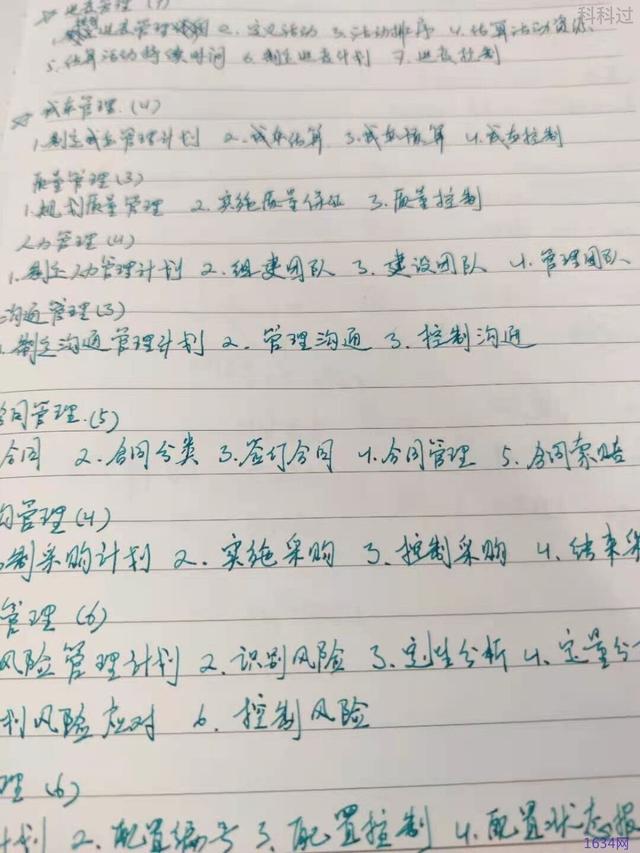 科科过
进度管理 (7)
进度管理 2. 定义活动 3. 活动排序 4. 估算活动资源
5. 估算活动持续时间 6. 制定进度计划 7. 进度控制
成本管理. (4)
1. 制定成本管理计划 2. 成本估算 3. 成本预算 4. 成本控制
质量管理 (3)
1. 规划质量管理 2. 实施质量保证 3. 质量控制
人力管理 (4)
1. 制定人力管理计划 2. 组建团队 3. 建设团队 4. 管理团队
沟通管理 (3)
制定沟通管理计划 2. 管理沟通 3. 控制沟通
合同管理. (5)
合同 2. 合同分类 3. 签订合同 4. 合同管理 5. 合同索赔
购管理 (4)
编制采购计划 2. 实施采购 3. 控制采购 4. 结束采
管理 (6)
风险管理计划 2. 识别风险 3. 定性分析 4. 定量分
划风险应对 6. 控制风险
理 (6)
计划 2. 配置编号 3. 配置控制 4. 配置状态报
1634网